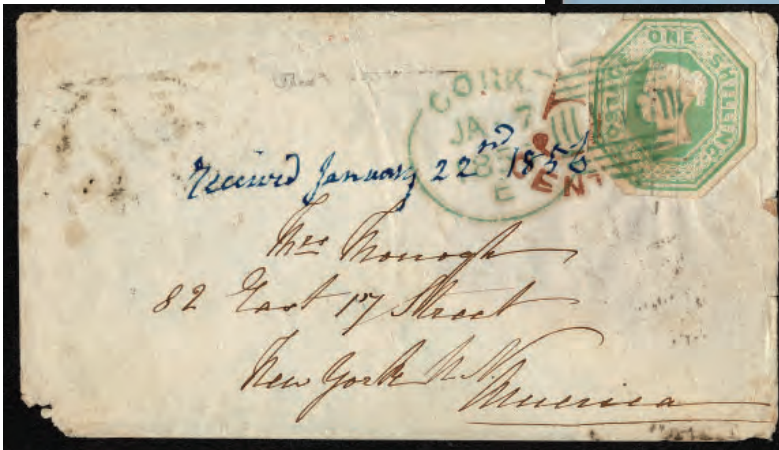 POSTAGE ONE SHILLING
CORK
JA 7
185
E
CENTS
received January 22nd 1856
Mrs
82 East 17 Street
New York N.Y.
America